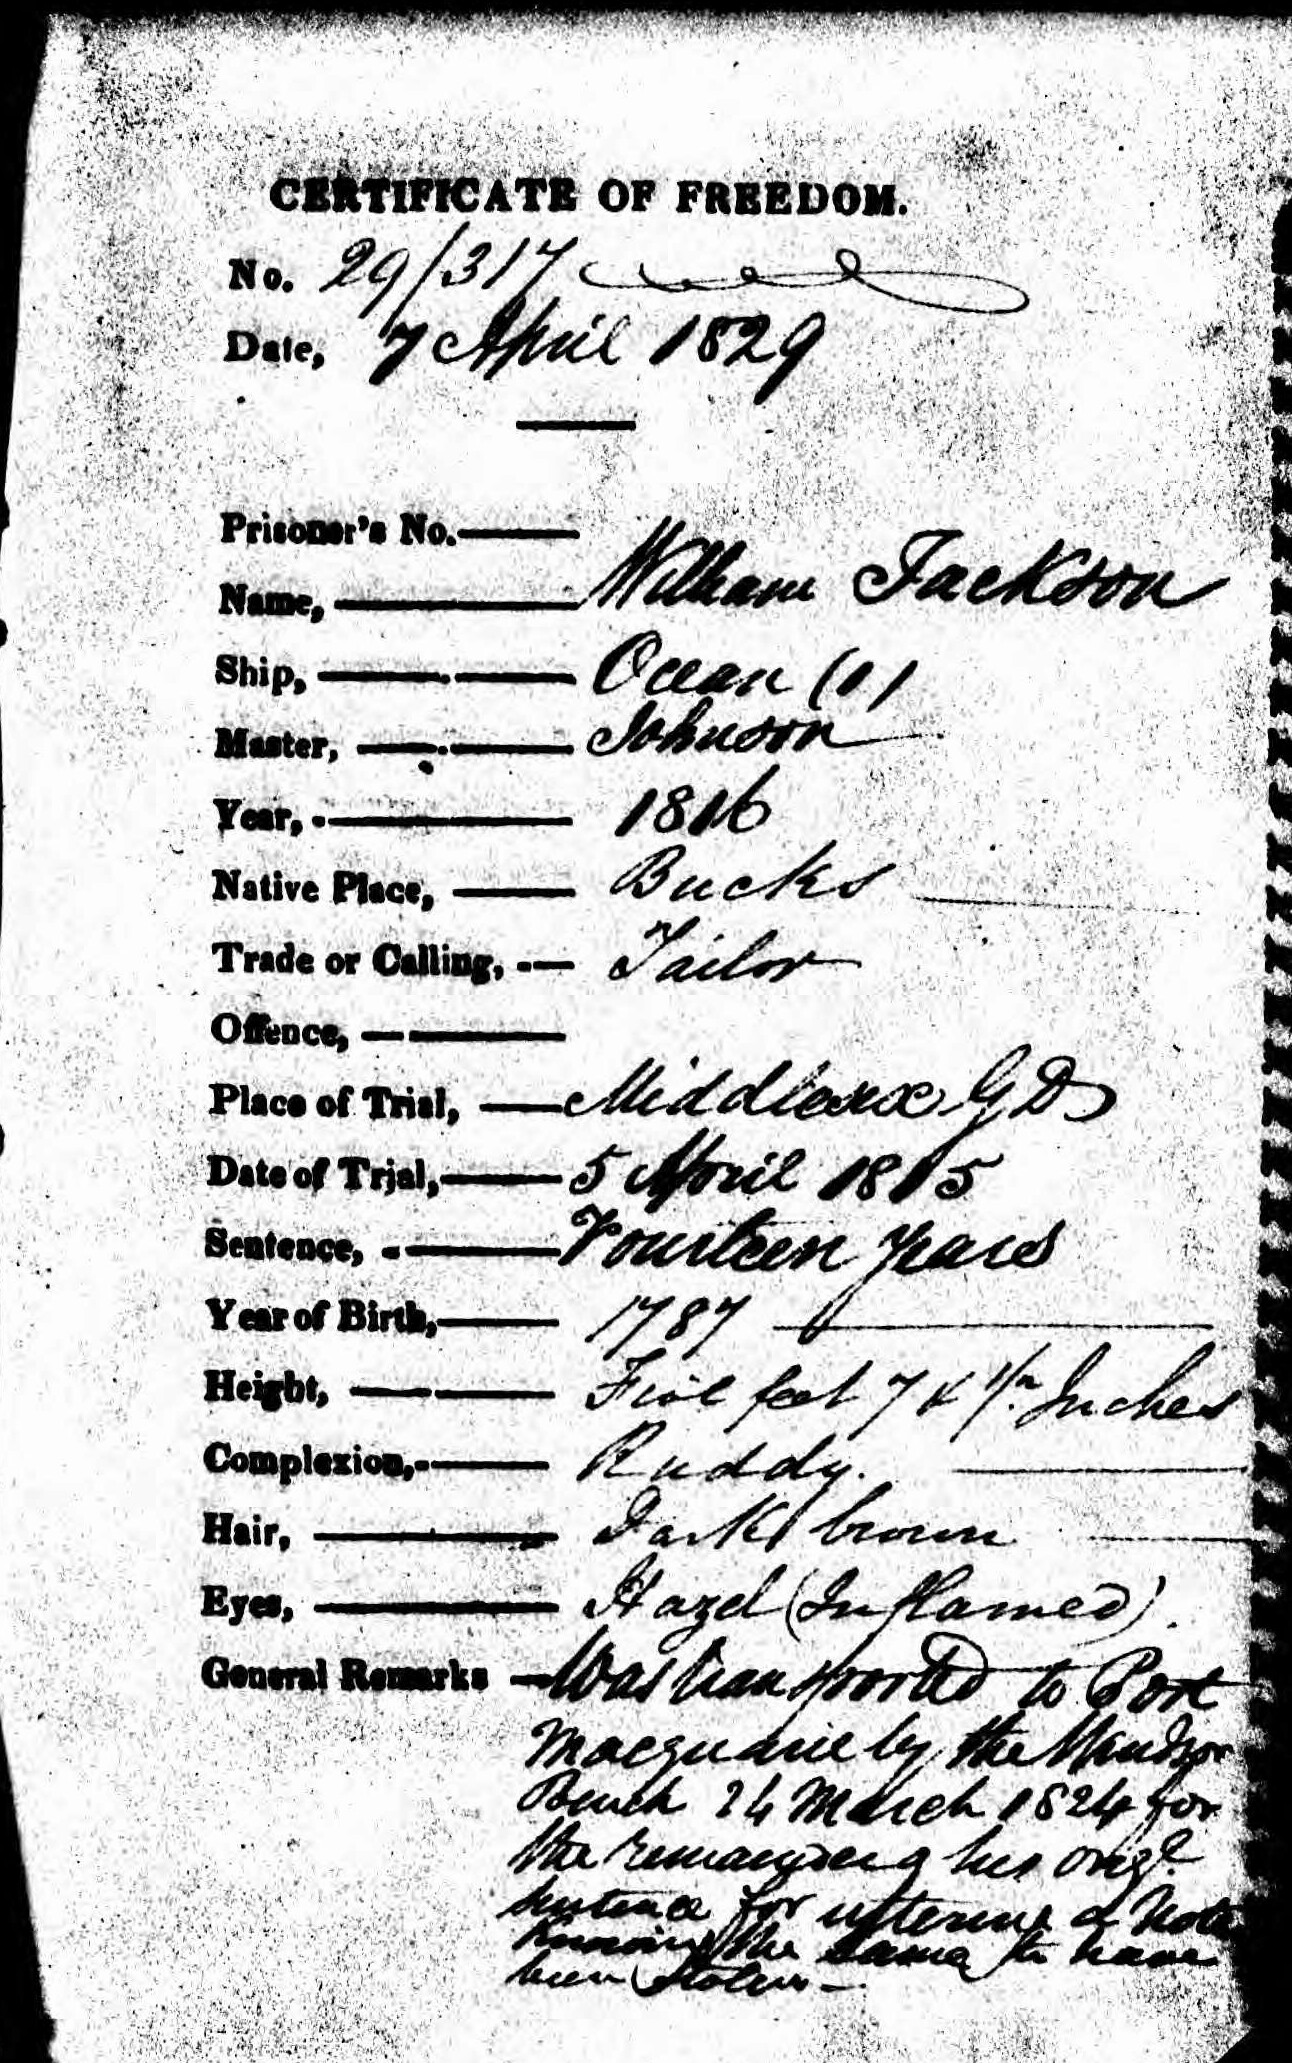 CERTIFICATE OF FREEDOM.
No. 29/317
Date, 7 April 1829
Prisoner's No.
Name, William Jackson
Ship, Ocean (1)
Master, Johnson
Year, 1816
Native Place, Bucks
Trade or Calling, Tailor
Offence,
Place of Trial, Middlesex G D
Date of Trial, 5 April 1815
Sentence, Fourteen years
Year of Birth, 1787
Height, Five feet 7 & 1/2 Inches
Complexion, Ruddy.
Hair, Dark brown
Eyes, Hazel (Inflamed).
General Remarks Was transported to Port
Macquarie by the Windsor
Bench 24 March 1824 for
the remainder of his origl.
sentence for uttering a note
knowing the same to have
been stolen